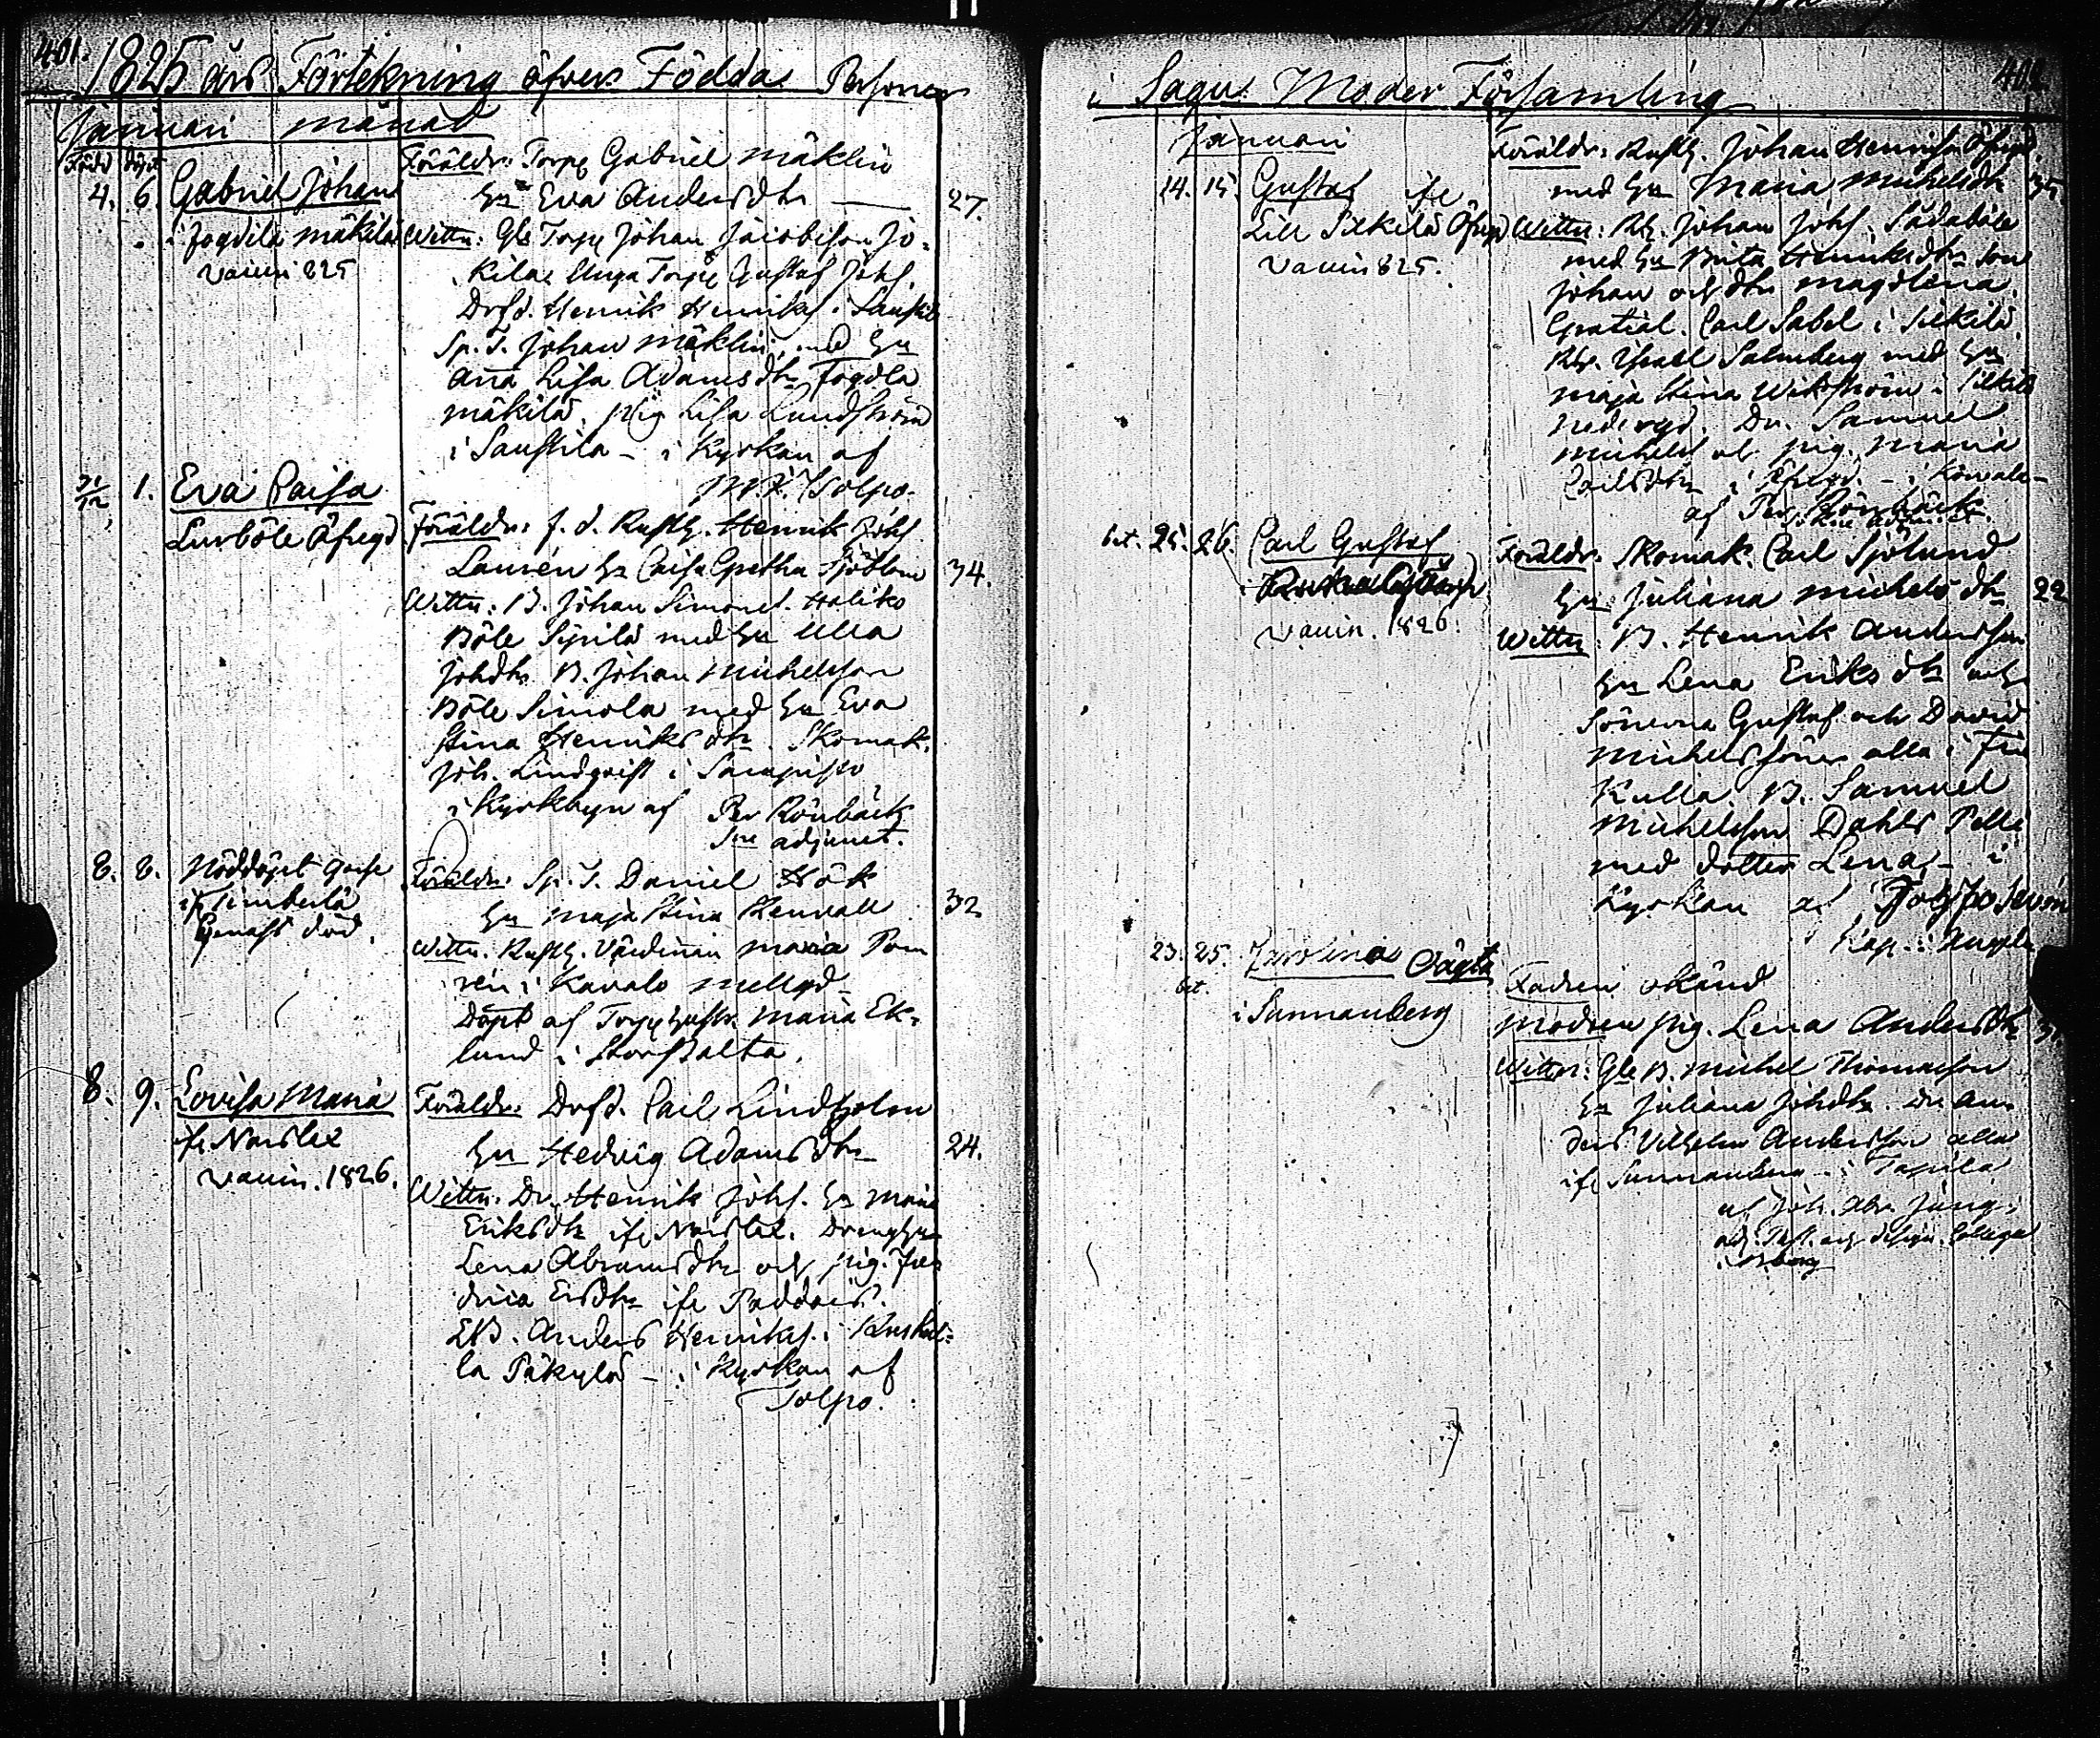 401.
1825 års Förtekning öfver Födda Personer
Januari månad
Född Döpt
4. 6. Gabriel Johan
i Fogdila mäkilä
vaccin 825
Föräldr: Torp Gabriel Mäklin
hu Eva Andersdtr 27.
Wittn: Gle Torp Johan Jacobsson Jo-
kila Unga Torp Gustaf Johs.
Drfd. Henrik Henriks. Saustila
Sp. T. Johan Mäklin med hu
Anna Lisa Adamsdtr Fogdla
mäkilä. pig Lisa Lundström
i Saustila - i Kyrkan af
Tolpo.
31/12 1. Eva Caisa
Lurböle Öfregd
Föräldr: f. d. Rusth. Henrik Johs.
Laurén hu Caisa Gretha Sjöblom 34.
Wittn: B. Johan Simons. Haliko
Böle Sipilä med hu Ulla
Johdtr B. Johan Michelsson
Böle Simola med hu Eva
Stina Henriksdtr. Skomak.
Joh. Lindqvist i
i Kyrkbyn af Per Rönbäck
Sne adjunct.
8. 8. Nöddöpt gosse
ifr Timberlä
genast död.
Föräldr: Sp. T. Daniel Hök
hu Maja Stina Stenvall 32
Wittn. Rusth. Värdinnan Maria Pom
rén i Kavalo mellgd
Döpt af Torp hustr. Maria Ek-
lund i Storpalta.
8. 9. Lovisa Maria
ifr Norslet
vaccin. 1826.
Föräldr: Drfd. Carl Lindholm
hu Hedvig Adamsdtr 24.
Wittn. Dr. Henrik Johs. hu Maria
Eriksdtr ifr Norslet. Dreng hu
Lena Abramsdtr och pig. Fre
drica Ersdtr ifr Paddais.
EB. Anders Henriks. i Kuskul-
la Päkylä - i Kyrkan af
Tolpo.
402
i Sagu Moder Församling
Januari
14. 15. Gustaf ifr
Lill Silkilä Öfregd
vaccin 825.
Föräldr: Rusth. Johan Henriksson Öfregd.
med hu Maria Michelsdtr 35.
Wittn: Rh. Johan Johs. Södaböle
med hu Brita Henriksdtr Son
Johan och dtr Magdlena
Gratial. Carl Sabel i Silkilä
Rh. Israel Salmberg med hu
Maja Stina Wikström i Silkilä
Nedergd. Dr. Samuel
Michels. och pig. Maria
Carlsdtr i Öfregd. - i
af Per Rönbäck
Sokne adjunct.
bet. 25. 26. Carl Gustaf
vaccin. 1826.
Föräldr. Skomak. Carl Sjölund
hu Juliana Michelsdtr 22
Wittn: B. Henrik Andersson
hu Lena Eriksdtr och
Sönerna Gustaf och David
Michelssöner alla i Fin
Kulla. B. Samuel
Michelsson Dahls Pelle
med dotter Lena - i
Kyrkan af
Kap. i
23. 25. Carolina Oägta
bet.
i Sunnanberg
Fadren okänd
Modren pig. Lena Andersdtr
Wittn: Gle B. Michel Thomasson
hu Juliana Johdtr. Dr. An-
ders Vilhelm Andersson alla
ifr Sunnanberg - i Tapila
af Joh. Abr. Jung